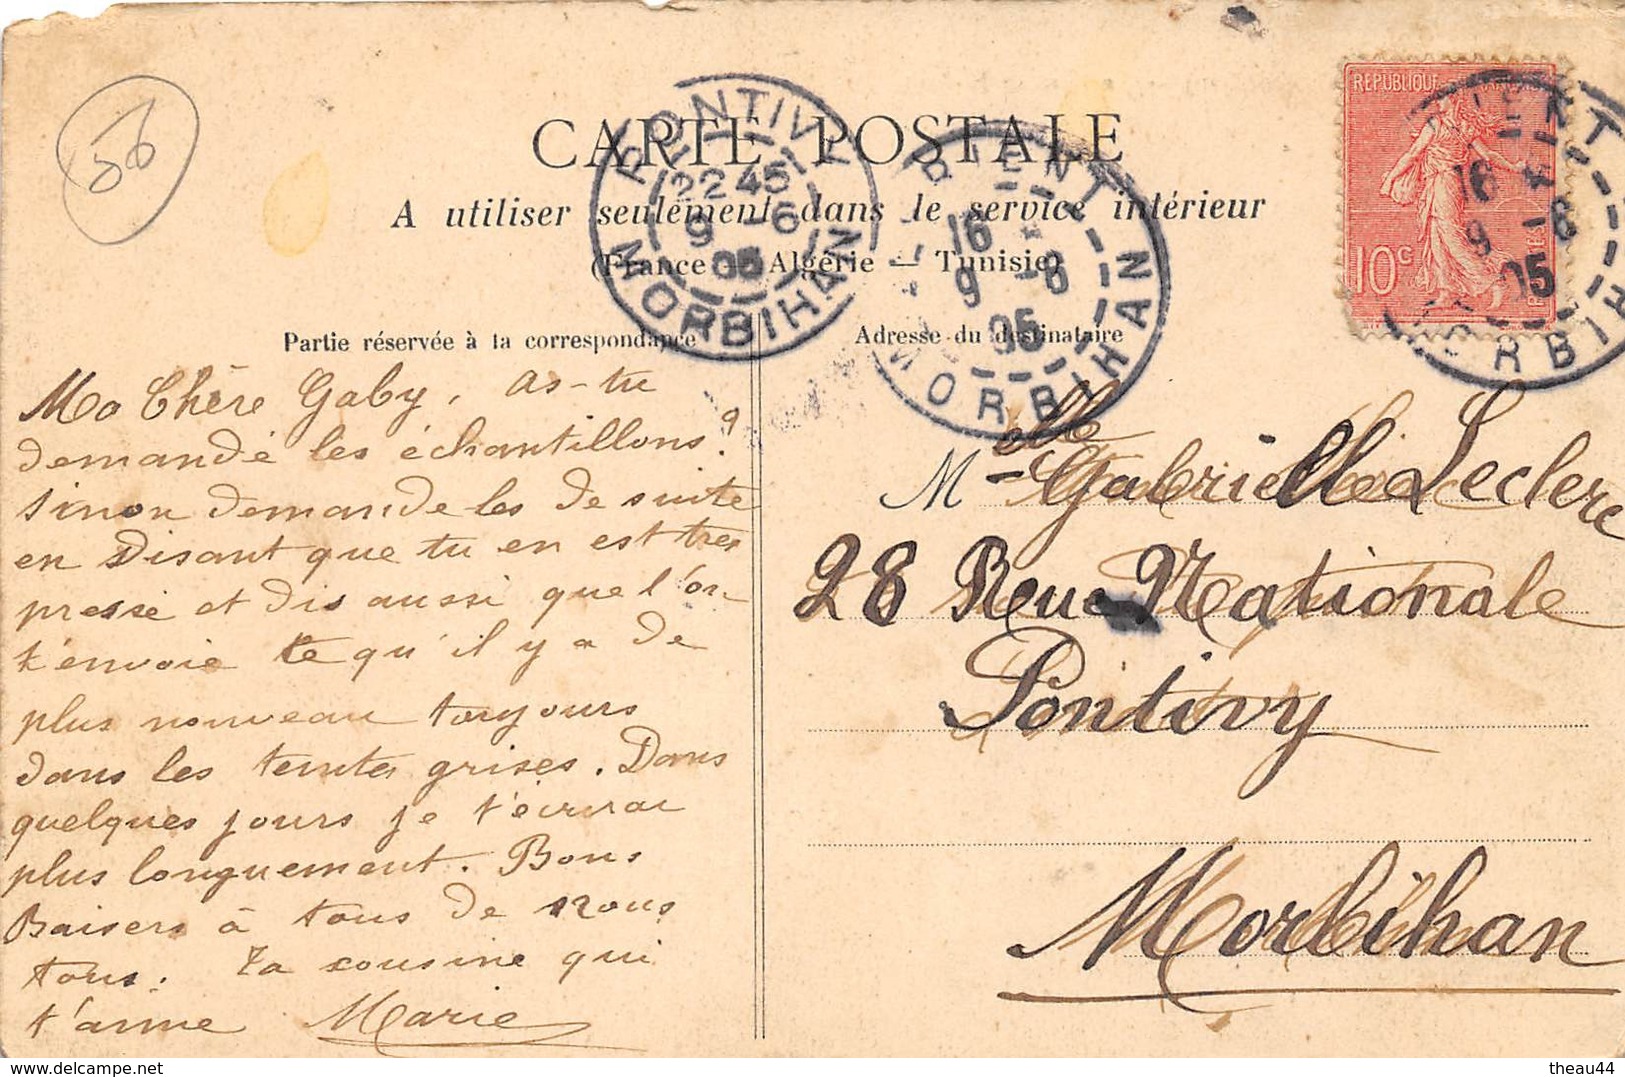 56
CARTE POSTALE
A utiliser seulement dans le service intérieur
(France — Algérie — Tunisie)
PONTIVY
22 45
9 -6
05
MORBIHAN
16
9 -6
05
MORBIHAN
REPUBLIQUE FRANÇAISE
10c
POSTES
16
9 -6
05
MORBIHAN
Partie réservée à la correspondance
Ma Chère Gaby, as-tu
demandé les échantillons?
sinon demande les de suite
en disant que tu en est très
pressé et dis aussi que l'on
t'envoie ce qu'il y a de
plus nouveau toujours
dans les teintes grises. Dans
quelques jours je t'écrirai
plus longuement. Bons
Baisers à tous de nous
tous. Ta cousine qui
t'aime Marie
Adresse du destinataire
Melle Gabrielle Leclere
28 Rue Nationale
Pontivy
Morbihan
theau44